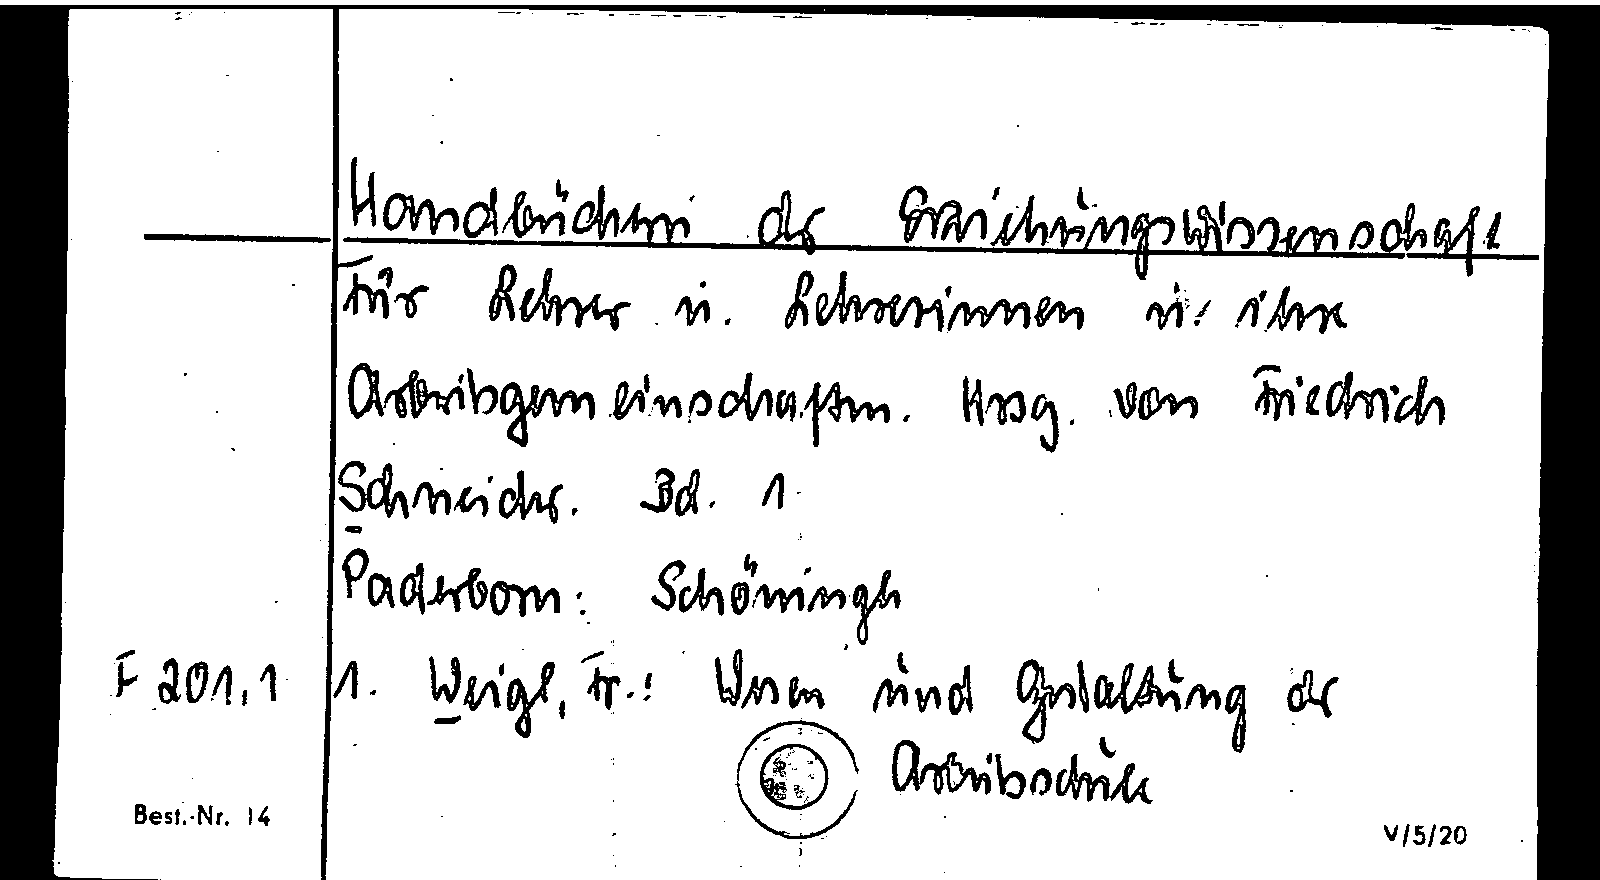 Handbücherei der Erziehungswissenschaft
Für Lehrer u. Lehrerinnen u. ihre
Arbeitsgemeinschaften. Hrsg. von Friedrich
Schneider. Bd. 1
Paderborn: Schöningh
F 201,1 1. Weigl, Fr.: Wesen und Gestaltung der
Arbeitsschule
Best.-Nr. 14
V/5/20